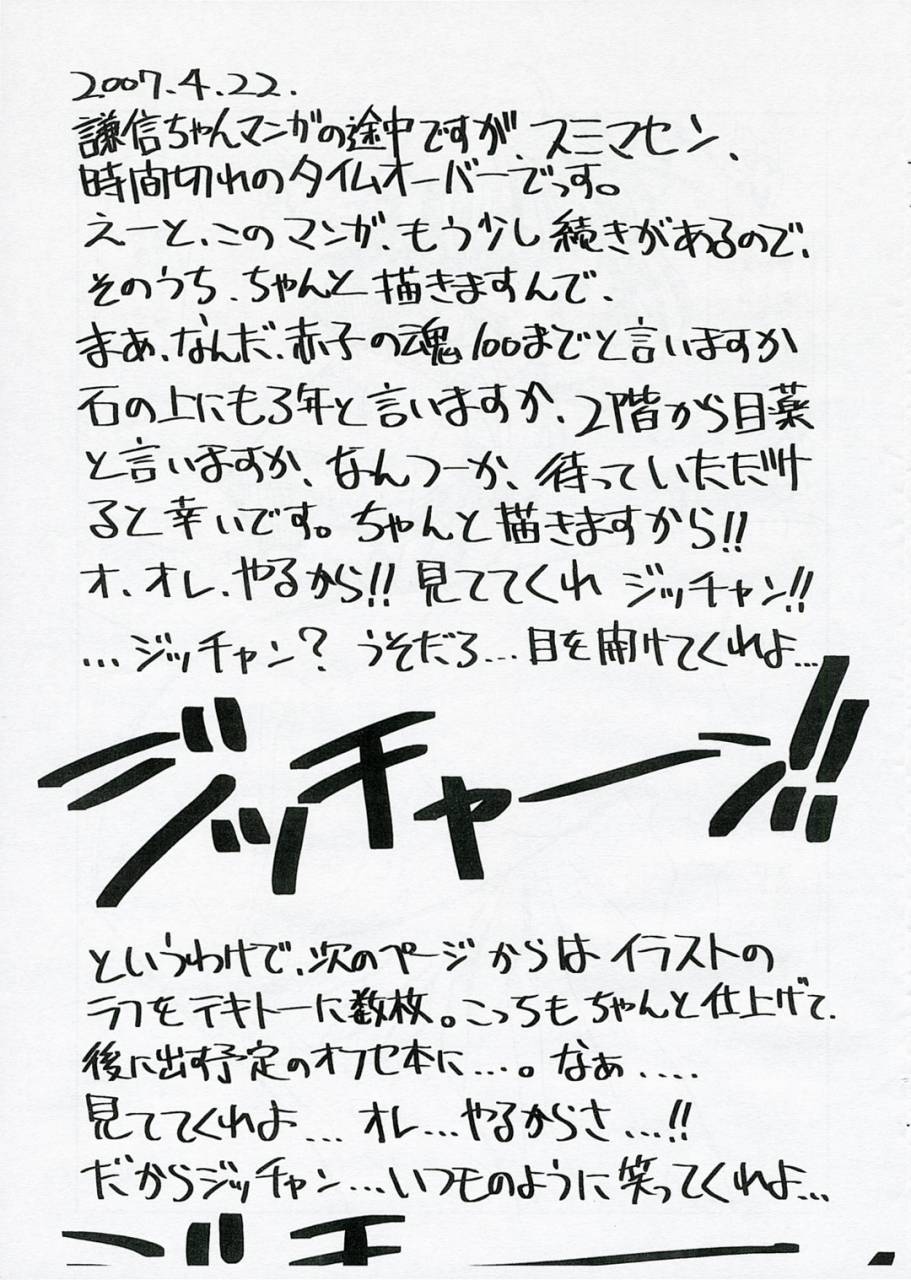 2007.4.22.
謙信ちゃんマンガの途中ですが、スミマセン、
時間切れのタイムオーバーでっす。
えーと、このマンガ、もう少し続きがあるので、
そのうち、ちゃんと描きますんで、
まあ、なんだ、赤子の魂100までと言いますか
石の上にも3年と言いますか、2階から目薬
と言いますか、なんつーか、待っていただけ
ると幸いです。ちゃんと描きますから!!
オ、オレ、やるから!! 見ててくれ ジッチャン!!
...ジッチャン? うそだろ...目を開けてくれよ...
ジッチャーン!!
というわけで、次のページからはイラストの
ラフをテキトーに数枚。こっちもちゃんと仕上げて、
後に出す予定のオフセ本に....。なぁ....
見ててくれよ... オレ...やるからさ...!!
だからジッチャン...いつものように笑ってくれよ...